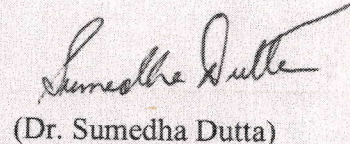 Sumedha Dutta
(Dr. Sumedha Dutta)